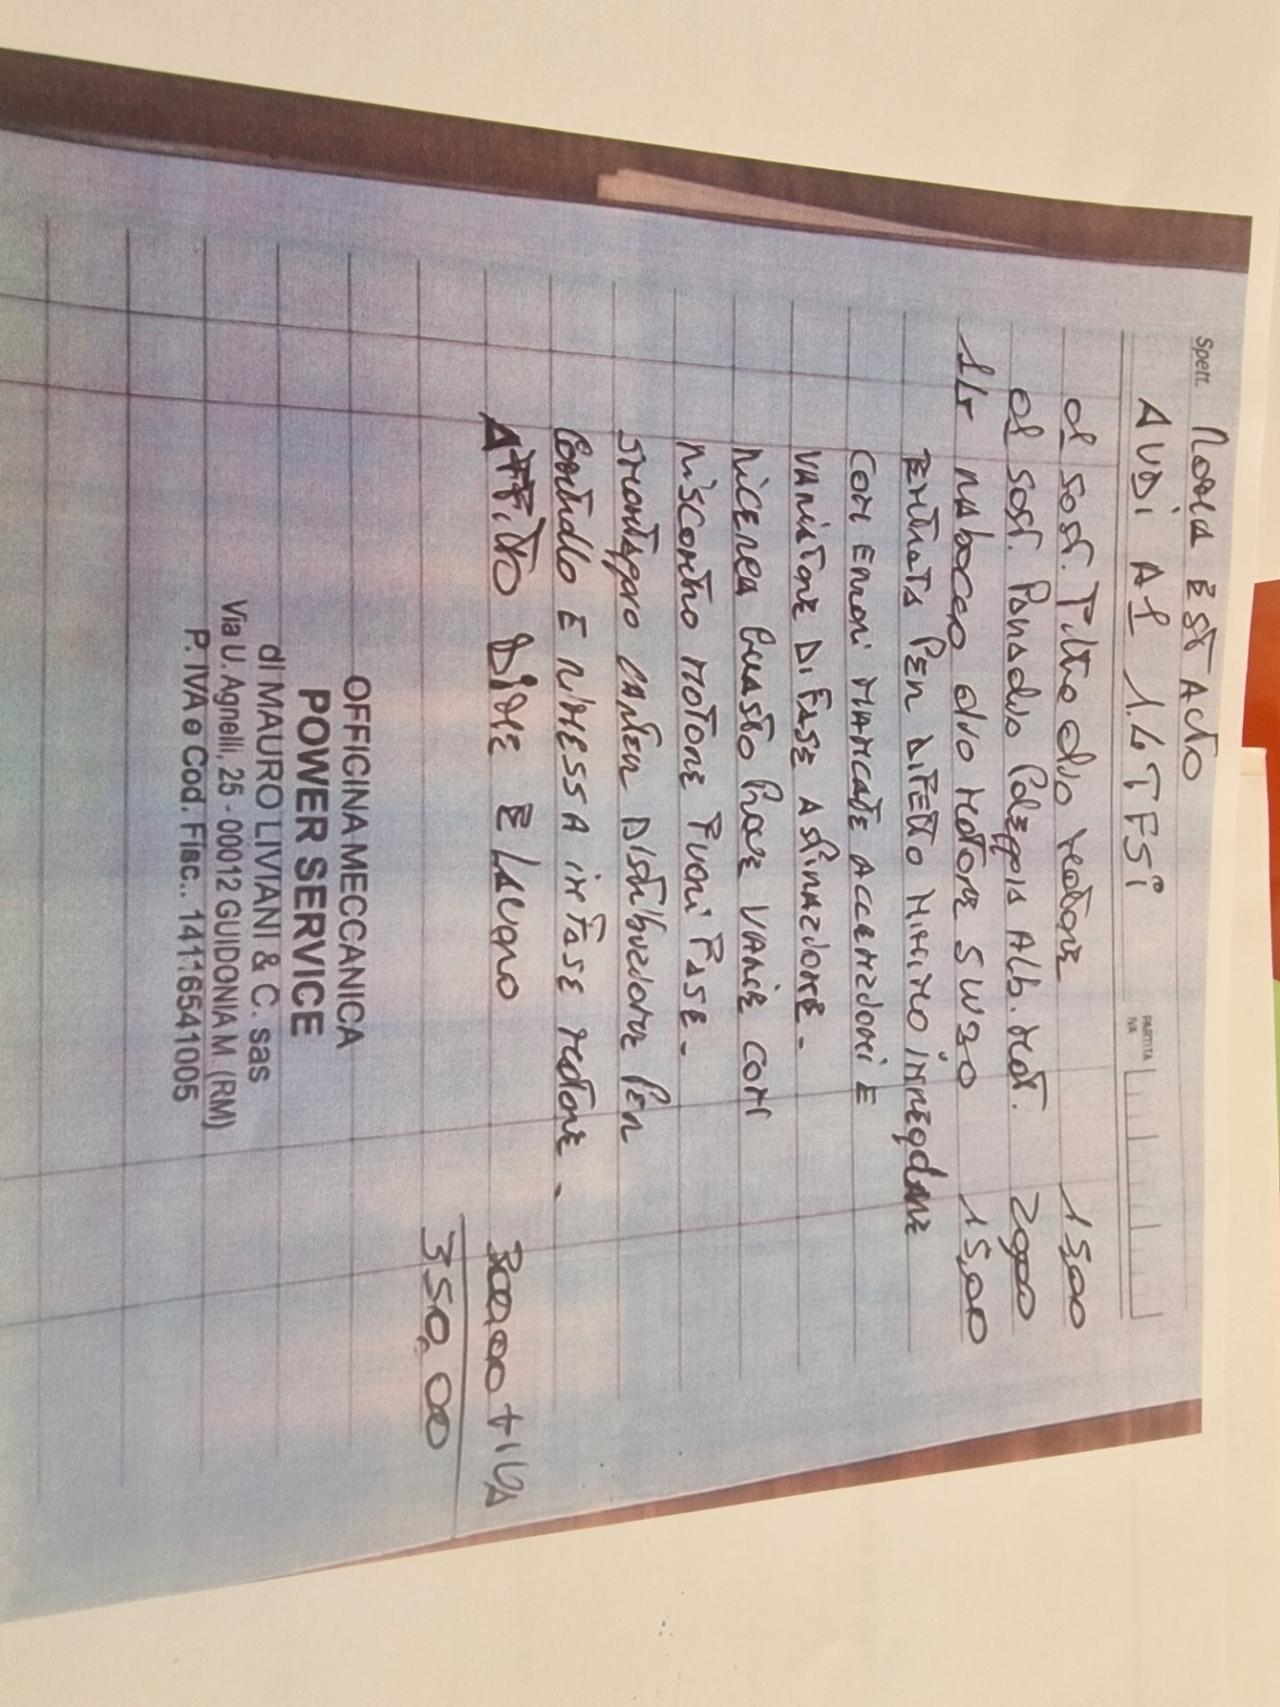 Spett. ESTATO
AUDI A1 1.4 TFSI
PARTITA IVA
01 SOST. Filtro olio motore 15,00
01 SOST. Paraolio Puleggia Alb. Mot. 20,00
1LT RABOCCO olio motore 5W30 15,00
ENTRATA PER DIFETTO MINIMO IRREGOLARE
CON ERRORI MANCATE ACCENZIONI E
VARIATORE DI FASE ASPIRAZIONE.
RICERCA GUASTO PROVE VARIE CON
RISCONTRO MOTORE FUORI FASE.
SMONTAGGIO CARTER DISTRIBUZIONE PER
CONTROLLO E RIMESSA IN FASE MOTORE.
AFFITTO DIME E LAVORO 300,00 + IVA
350,00
OFFICINA MECCANICA
POWER SERVICE
di MAURO LIVIANI & C. sas
Via U. Agnelli, 25 - 00012 GUIDONIA M. (RM)
P. IVA e Cod. Fisc.. 14116541005